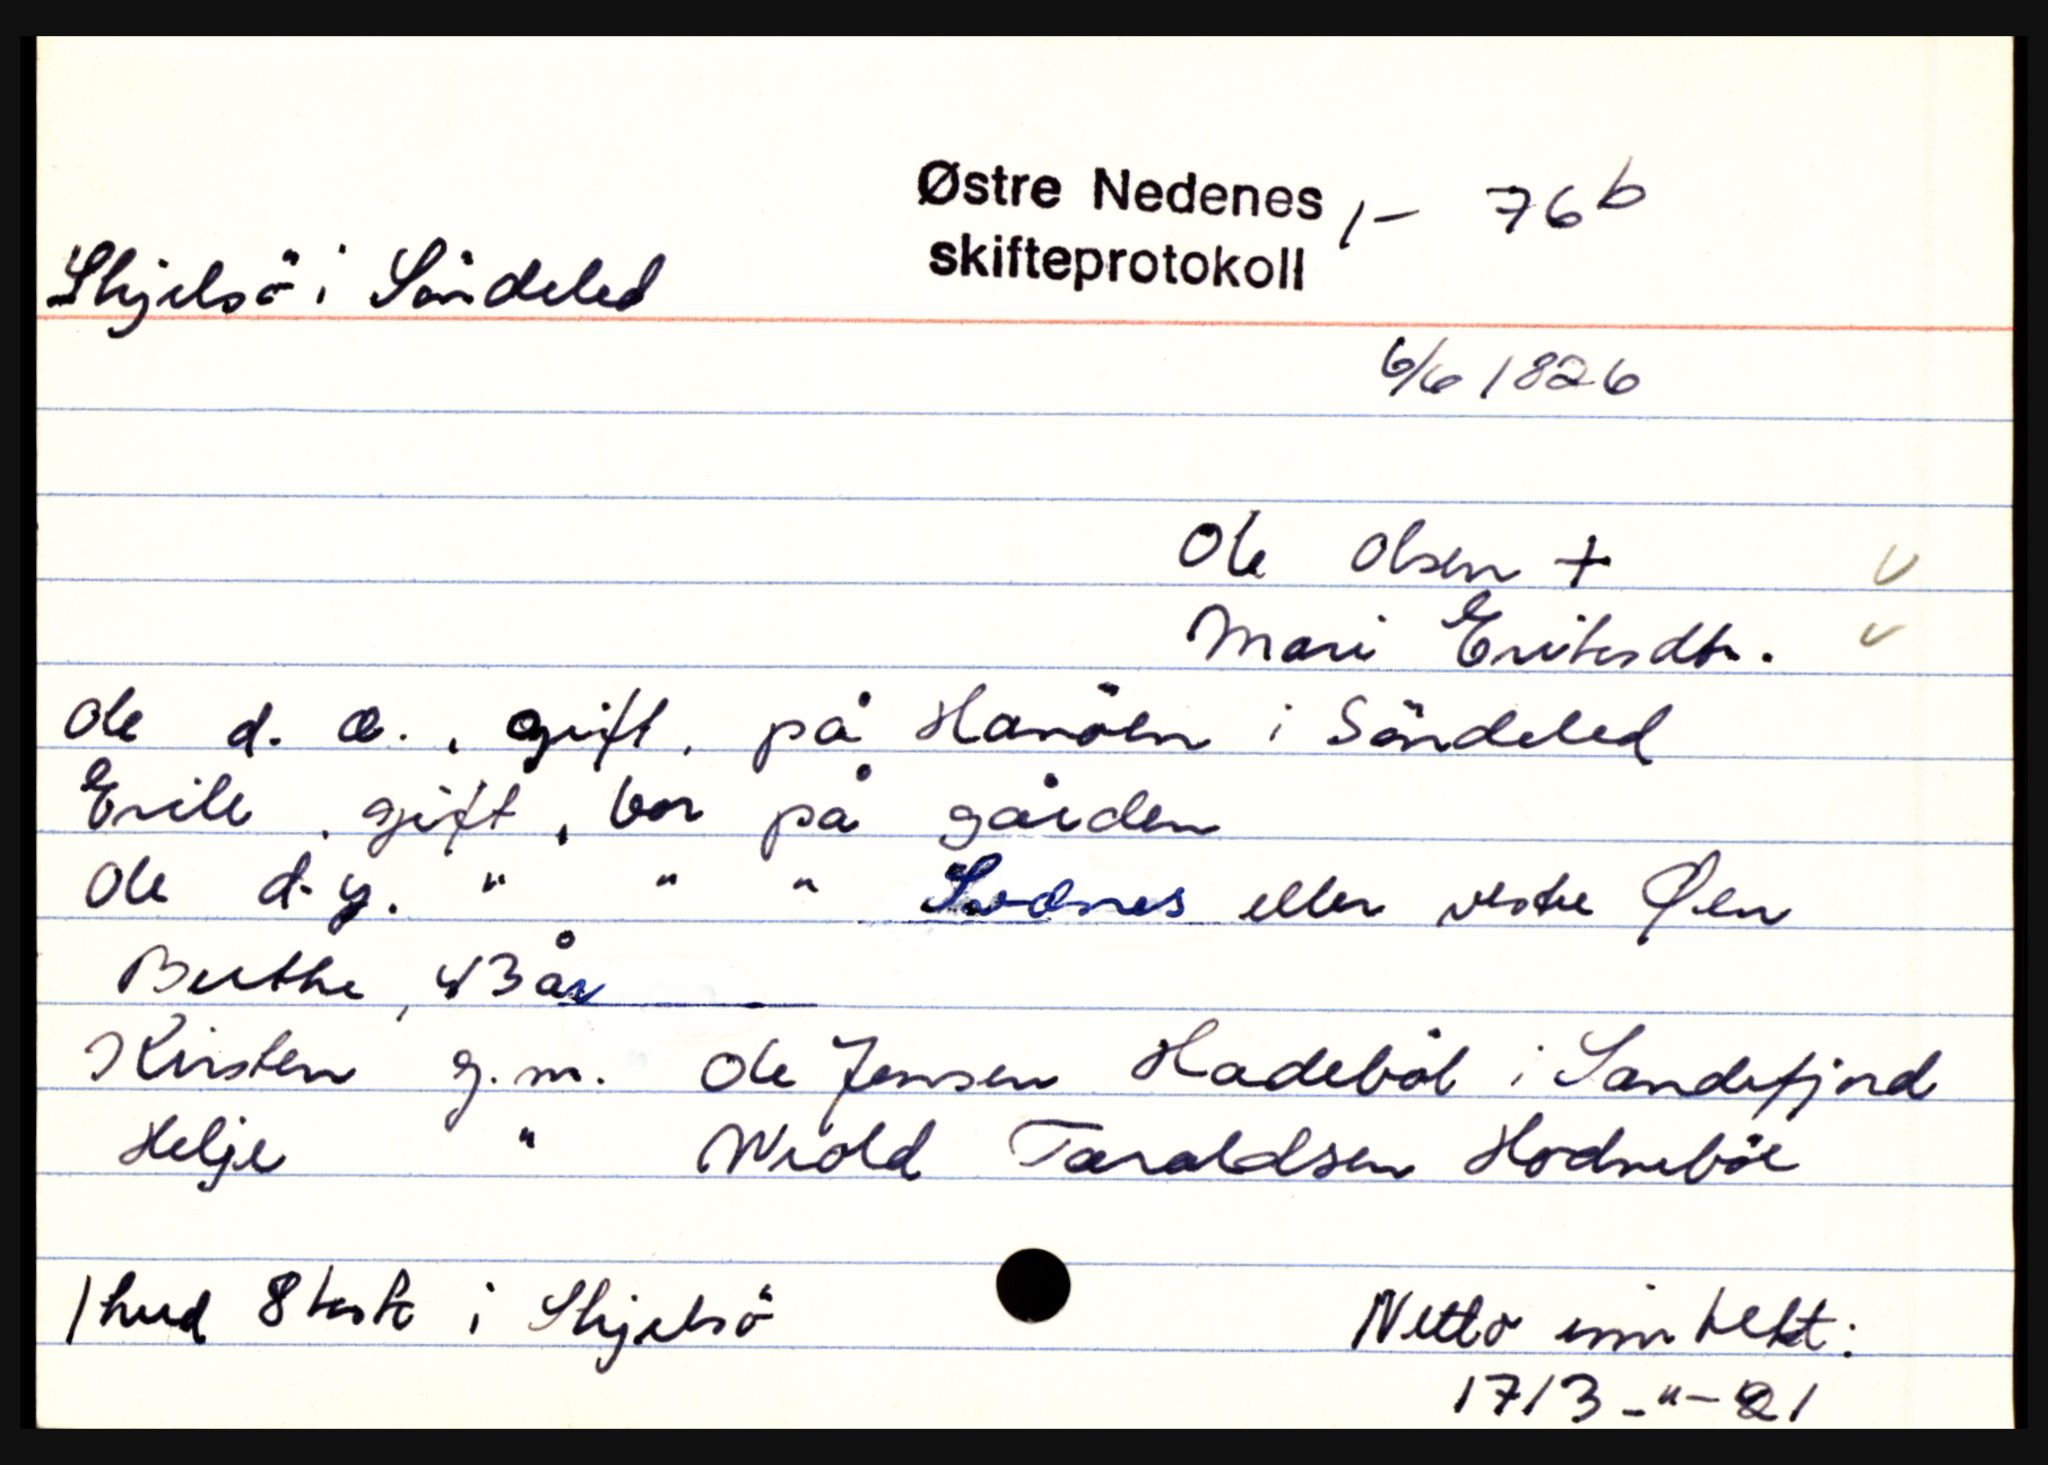 Østre Nedenes 1- 76b
skifteprotokoll
Skjelsö i Söndeled
6/6 1826
Ole Olsen +
Mari Eriksdtr.
Ole d. e., gift, på Hanöen i Söndeled
Erik, gift, bor på gården
Ole d. y. " " " Sødnes eller vestre Øen
Berthe, 43 år
Kirsten g. m. Ole Jensen Hadeböl i Sandefjord
Helje " Wrold Taraldsen Hodneböl
1 hud 8 i Skjelsö
Netto inntekt:
1713-"-21